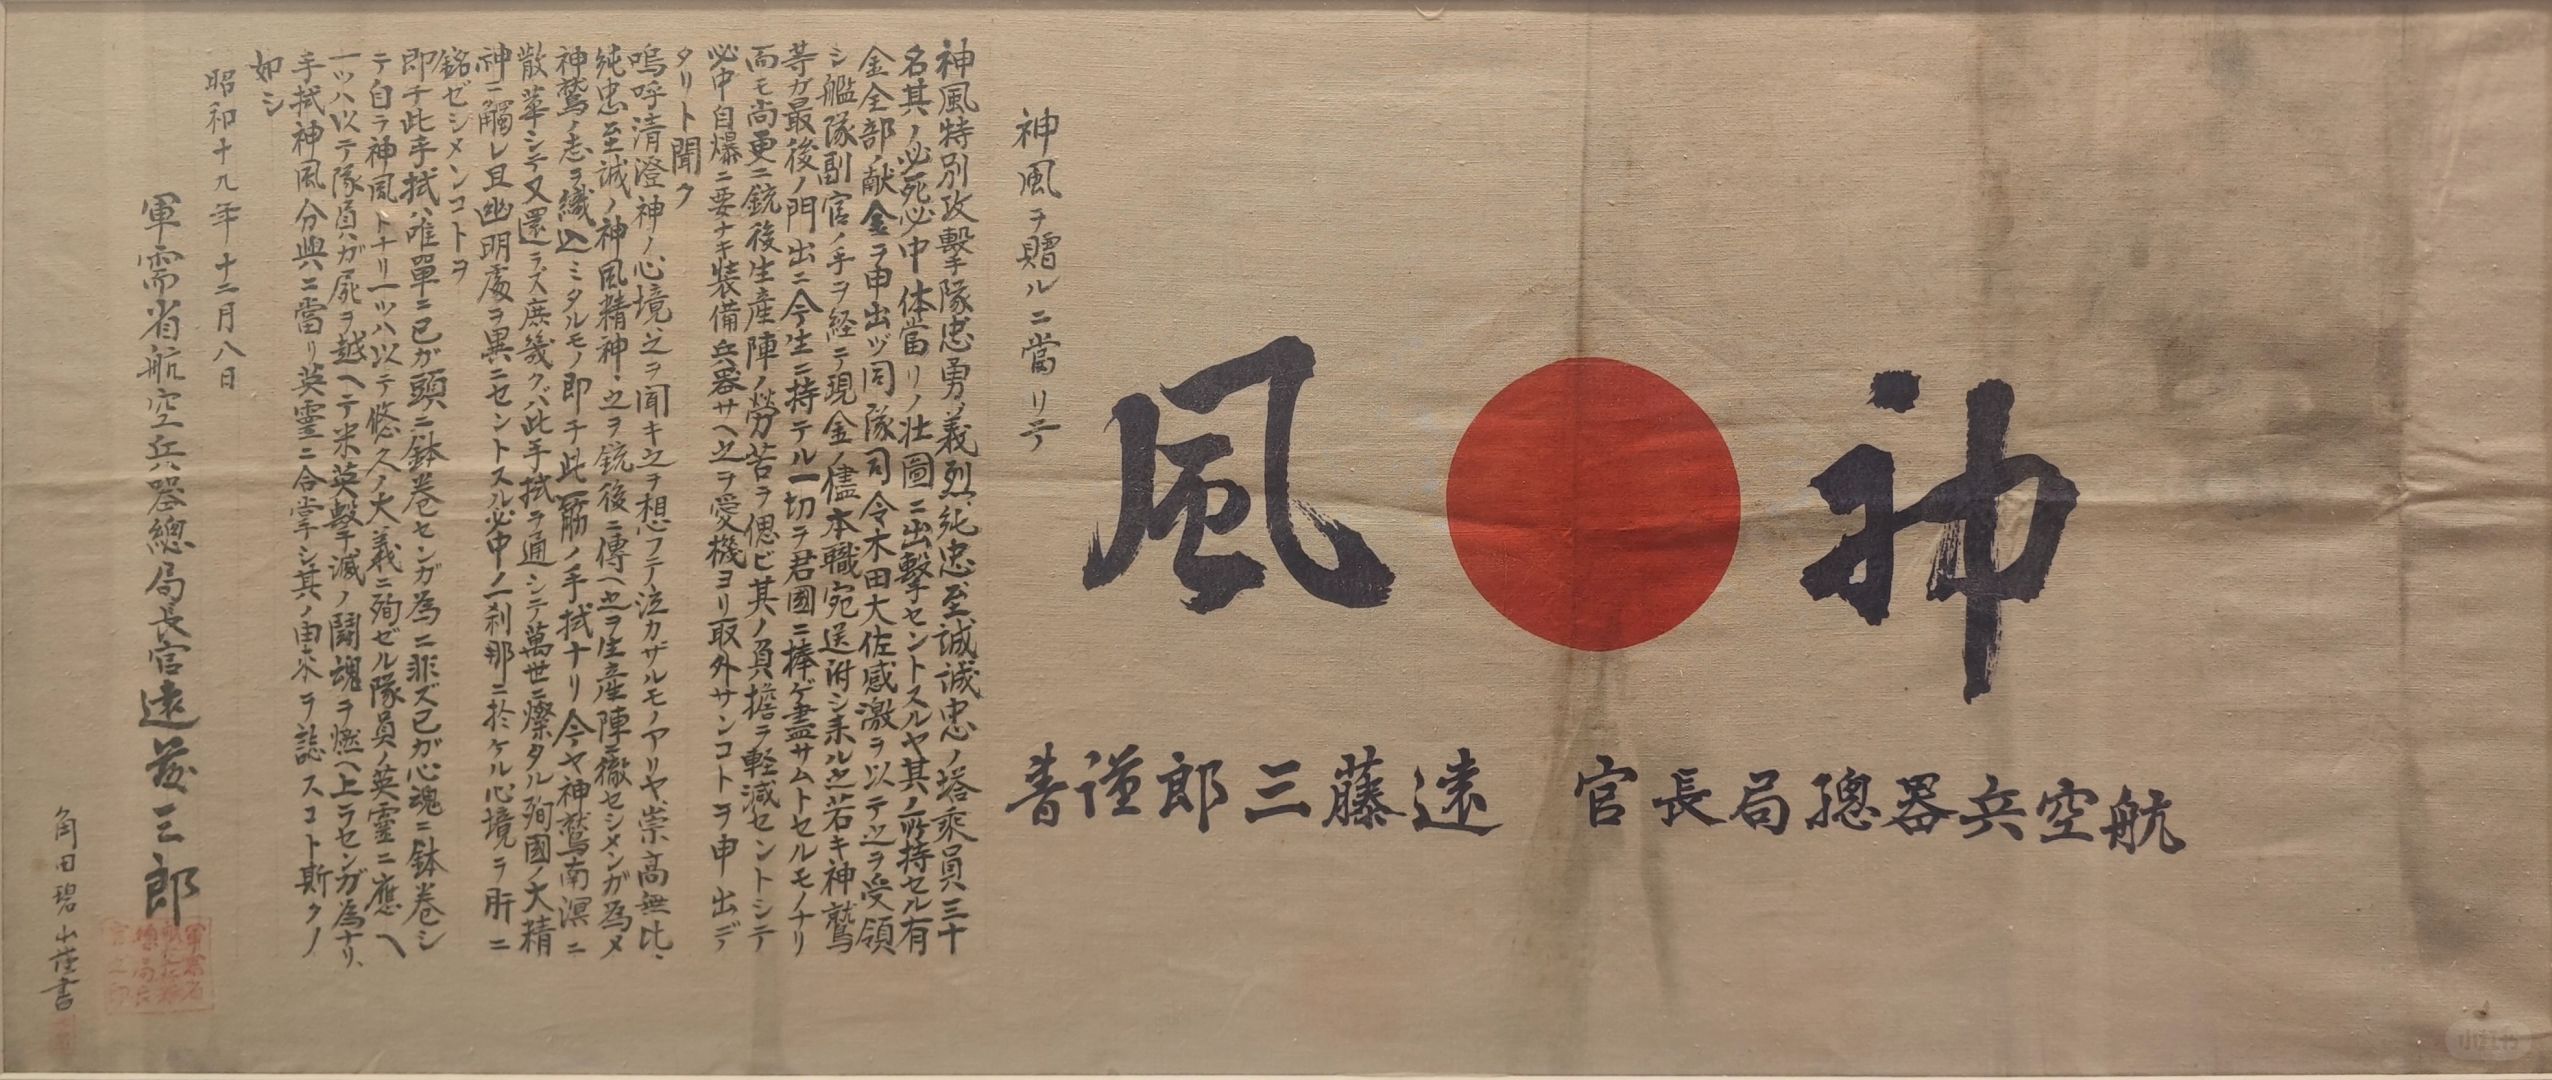 神風
航空兵器總局長官 遠藤三郎謹書
神風ヲ贈ルニ當リテ
神風特別攻擊隊忠勇、義烈、純忠、至誠、誠忠ノ塔乘員三十
名其ノ必死必中体當リノ壮圖ニ出擊セントスルヤ其ノ所持セル有
金全部ノ献金ヲ申出ヅ同隊司令木田大佐感激ヲ以テ之ヲ受領
シ艦隊副官ノ手ヲ経テ現金ノ儘本職宛送附シ来ル之若キ神鷲
等ガ最後ノ門出ニ今生ニ持テル一切ヲ君國ニ捧ゲ盡サムトセルモノナリ
而モ尚更ニ銃後生産陣ノ勞苦ヲ偲ビ其ノ負擔ヲ軽減セントシテ
必中自爆ニ要ナキ装備兵器サヘ之ヲ愛機ヨリ取外サンコトヲ申出デ
タリト聞ク
嗚呼清澄神ノ心境、之ヲ聞キ之ヲ想フテ泣カザルモノアリヤ、崇高無比、
純忠至誠ノ神風精神、之ヲ銃後ニ傳ヘ之ヲ生産陣ニ徹セシメンガ為メ
神鷲ノ志ヲ織込ミタルモノ即チ此一筋ノ手拭ナリ今ヤ神鷲南溟ニ
散華シテ又還ラズ庶幾クバ此手拭ヲ通シテ萬世ニ燦タル殉國ノ大精
神ニ觸レ且幽明處ヲ異ニセントスル必中ノ一刹那ニ於ケル心境ヲ肝ニ
銘ゼシメンコトヲ
即チ此手拭ハ唯單ニ己ガ頭ニ鉢巻センガ為ニ非ズ己ガ心魂ニ鉢巻シ
テ自ラ神風トナリ一ツハ以テ悠久ノ大義ニ殉ゼル隊員ノ英靈ニ應ヘ
一ツハ以テ隊員ガ屍ヲ越ヘテ米英擊滅ノ鬪魂ヲ燃ヘ上ラセンガ為ナリ、
手拭神風分與ニ當リ英靈ニ合掌シ其ノ由来ヲ誌スコト斯クノ
如シ
昭和十九年十二月八日
軍需省航空兵器總局長官遠藤三郎
角田碧山謹書